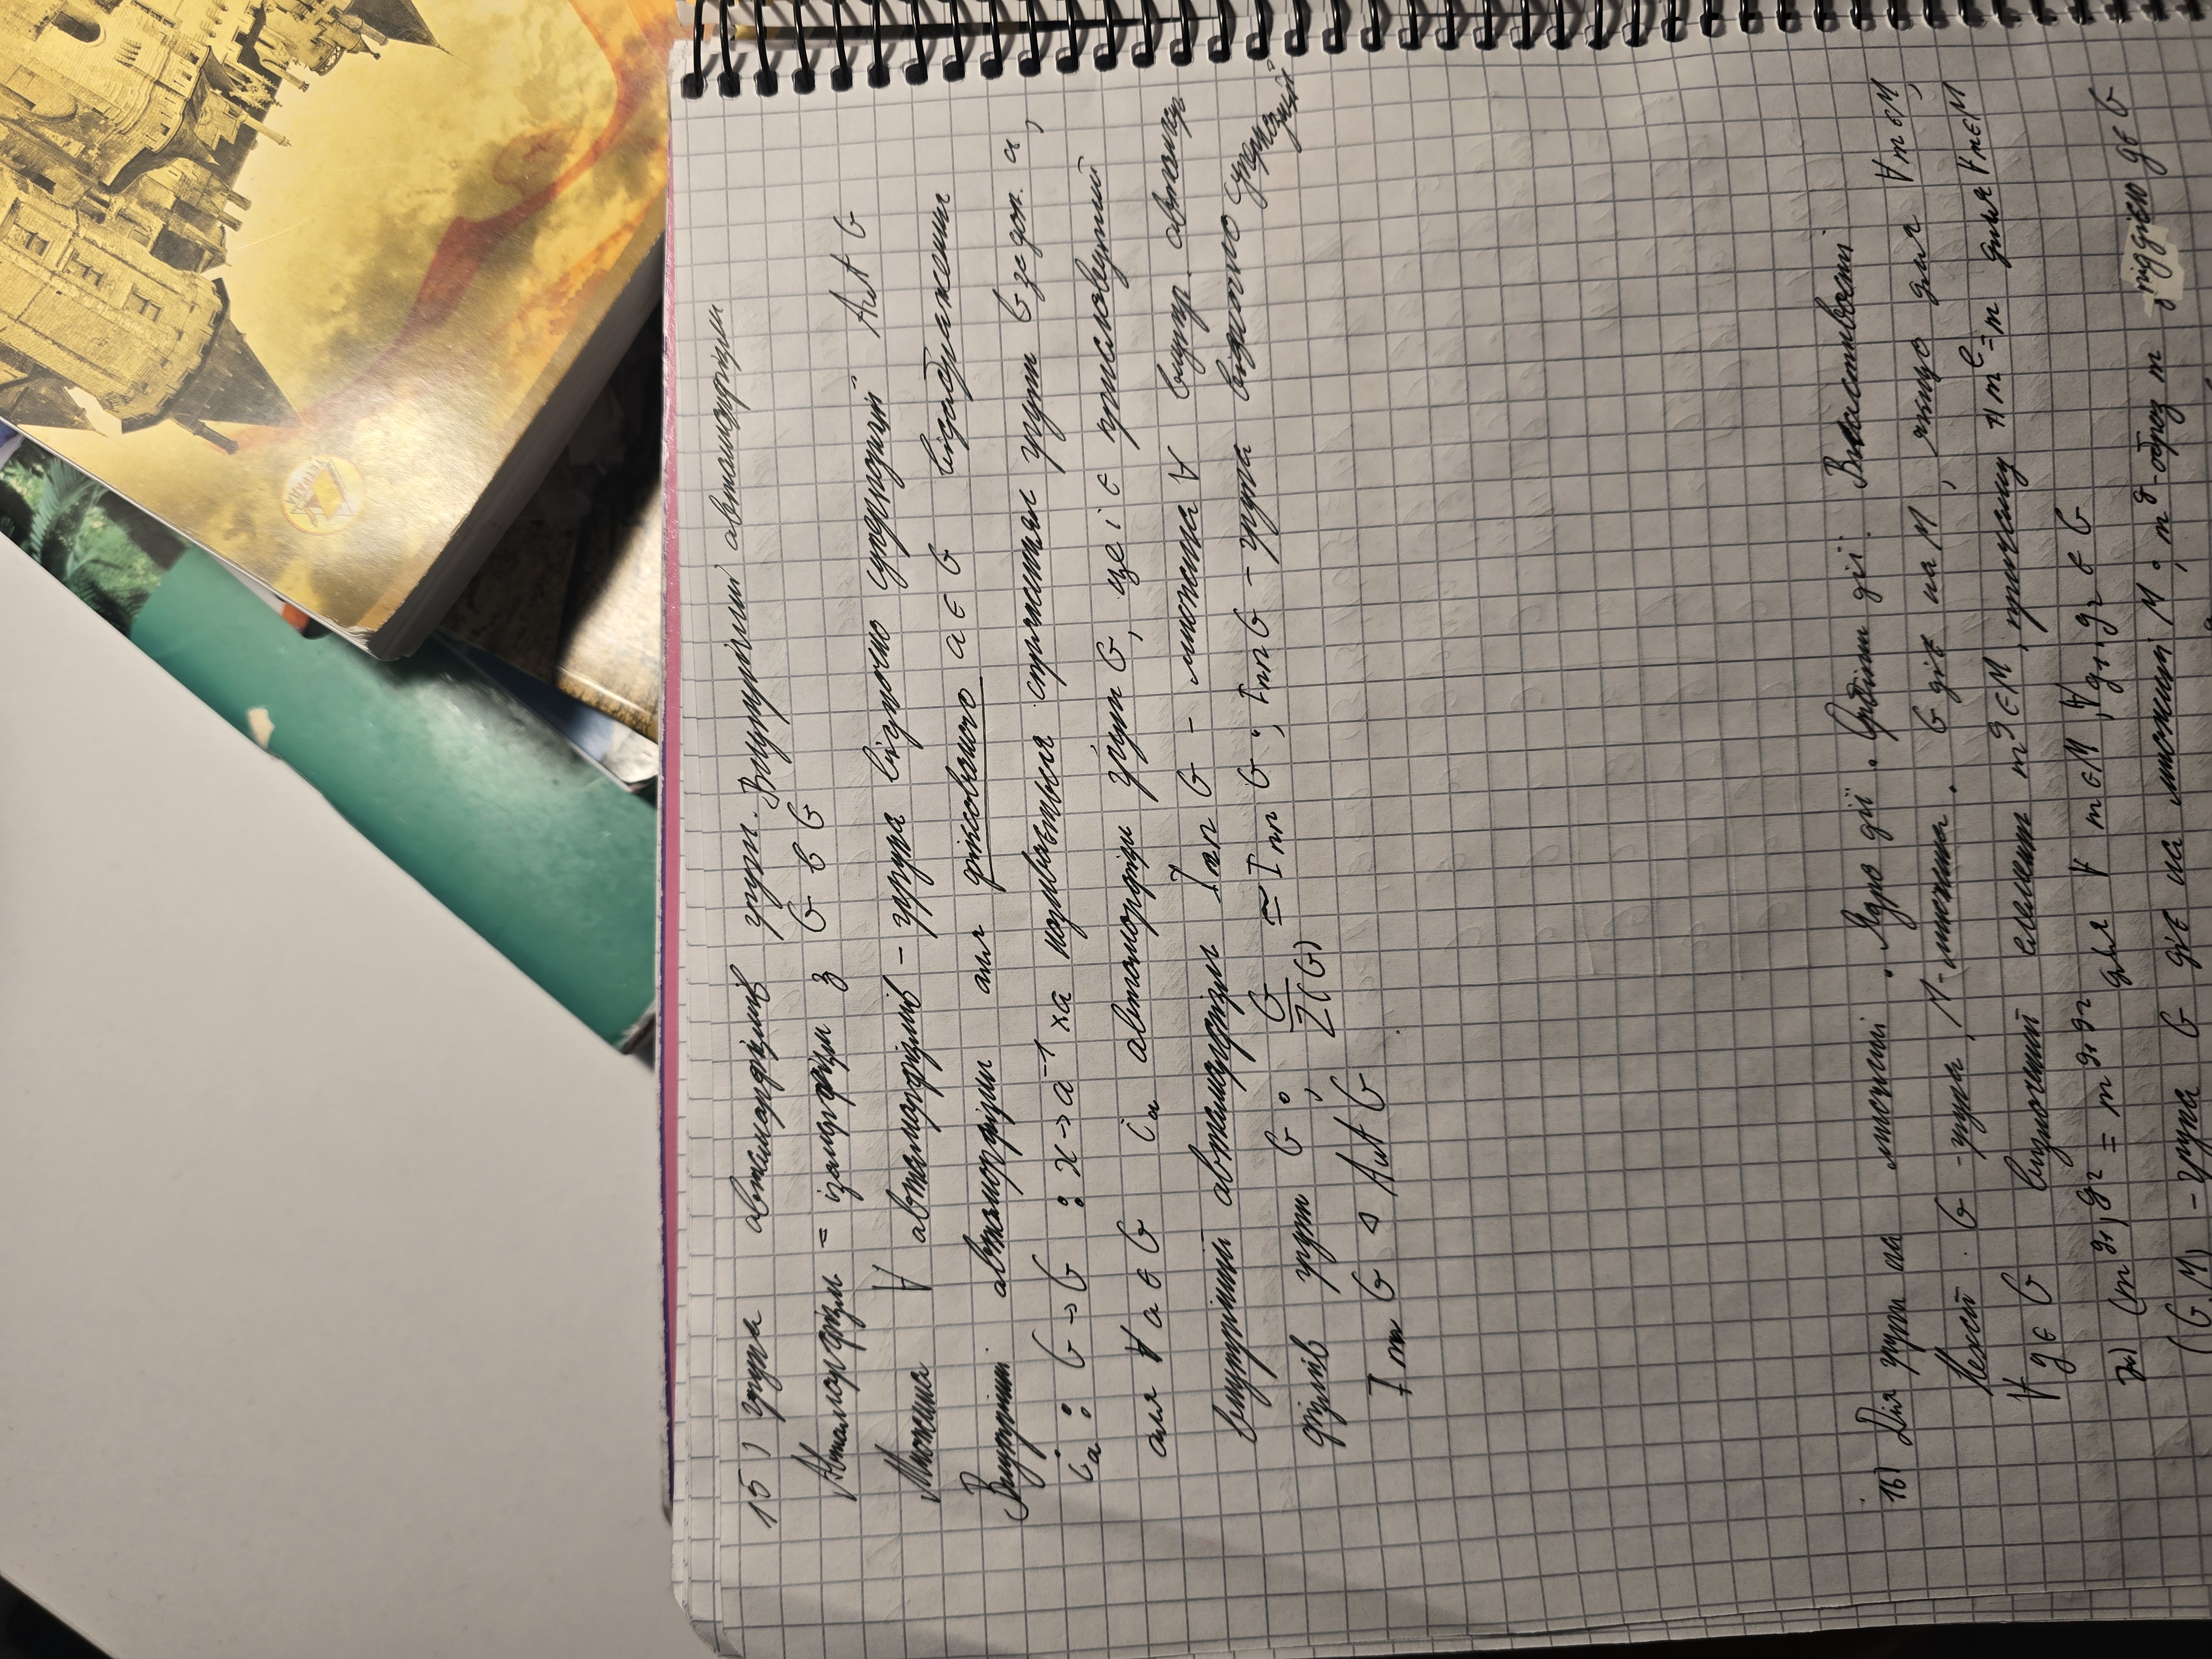 15) група автоморфізмів груп. Внутрішні автоморфізми
Автоморфізм = ізоморфізм з G в G
Множина ∀ автоморфізмів – група відносно суперпозиції Aut G
Внутрішні автоморфізми для фіксованого a ∈ G відображення
i_a : G → G : x → a⁻¹xa називається спряженням групи G за доп. a,
для ∀ a ∈ G i_a автоморфізм груп G, це і є
внутрішній автоморфізм Inn G – множина ∀ внутр. автомор
фізмів групи G ; G/Z(G) ≃ Inn G ; Inn G – група відносно суперпозиції
Inn G ◁ Aut G
16) Дія групи на множині . Ядро дії . Орбіти дії . Властивості
Нехай G - група, M - множина . G діє на M , якщо для ∀ m ∈ M,
∀ g ∈ G визначений елемент m^g ∈ M , причому m^e = m для ∀ m ∈ M
(m^g₁)^g₂ = m^g₁g₂ для ∀ m ∈ M, ∀ g₁, g₂ ∈ G
(G, M) – група G діє на множині M ; m^g - образ m під дією g ∈ G